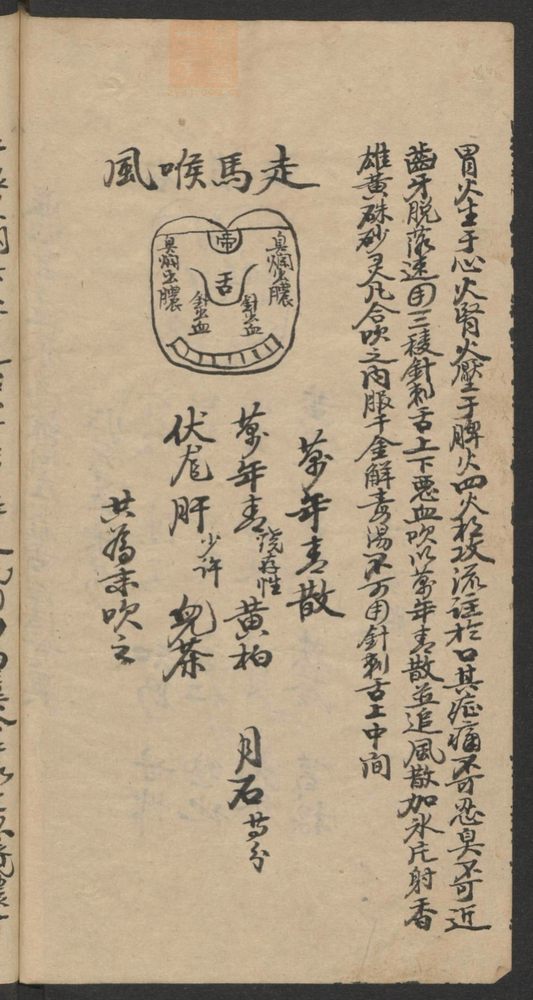 胃火生于心火腎火壓于脾火四火相攻流注於口其症痛不可忍臭不可近
齒牙脫落速用三稜針刺舌上下惡血吹以萬年青散並追風散加氷片射香
雄黃硃砂灵凡合吹之内服千金解毒湯不可用針刺舌上中间
走馬喉風
帝
舌
臭爛出膿
臭爛出膿
針出血
針出血
萬年青散
萬年青 燒存性 黃柏 月石 等分
伏龙肝 少許 兒茶
共為末吹之